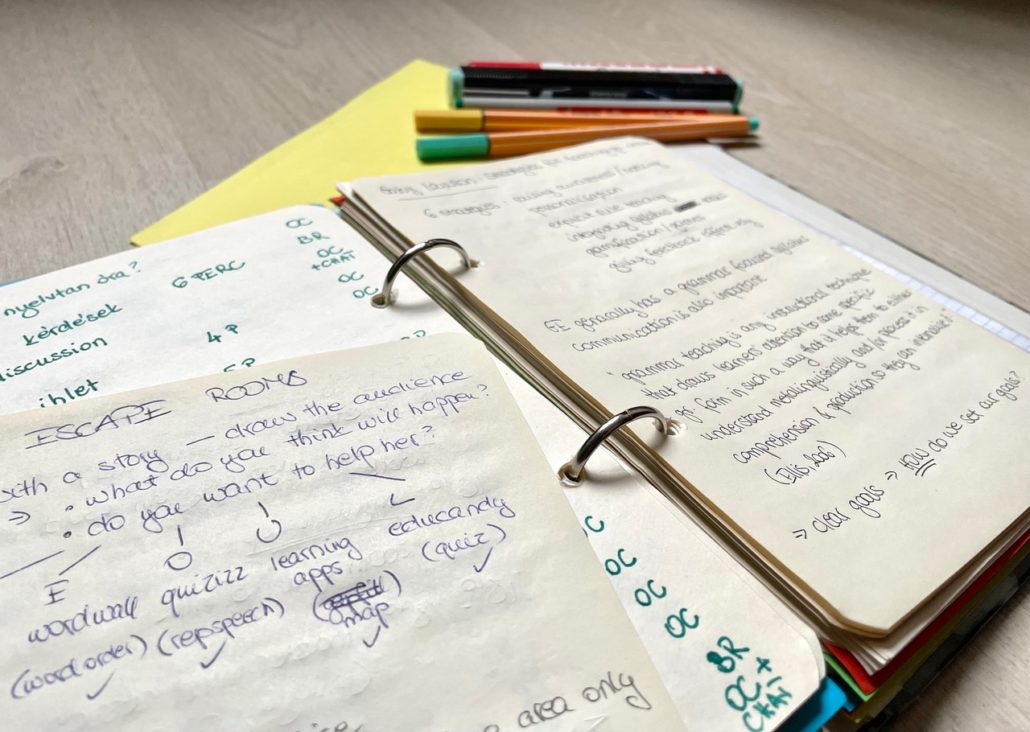 nyelvtan óra?
6 PERC
OC
BR
OC
+CHAT
OC
OC
kérdések
discussion
4 P
ihlet
5P
ESCAPE ROOMS
with a story — draw the audience
⇒ • what do you think will happen?
• do you want to help her?
E
wordwall quizizz learning apps educandy
(word order) (rep speech) (map) (quiz)
area only
OC
OC
OC
OC
BR
OC +
CHAT
6 strategies: raising awareness / noticing
personalization
explicit rule teaching
integrating
gamification / games
giving feedback
GE generally has a grammar focused syllabus
communication is also important
"grammar teaching is any instructional technique
that draws learners' attention to some specific
gr. form in such a way that it helps them to either
understand metalinguistically and/or process it in
comprehension & production so they can internalize"
(Ellis, 2006)
⇒ clear goals ⇒ HOW do we set our goals?